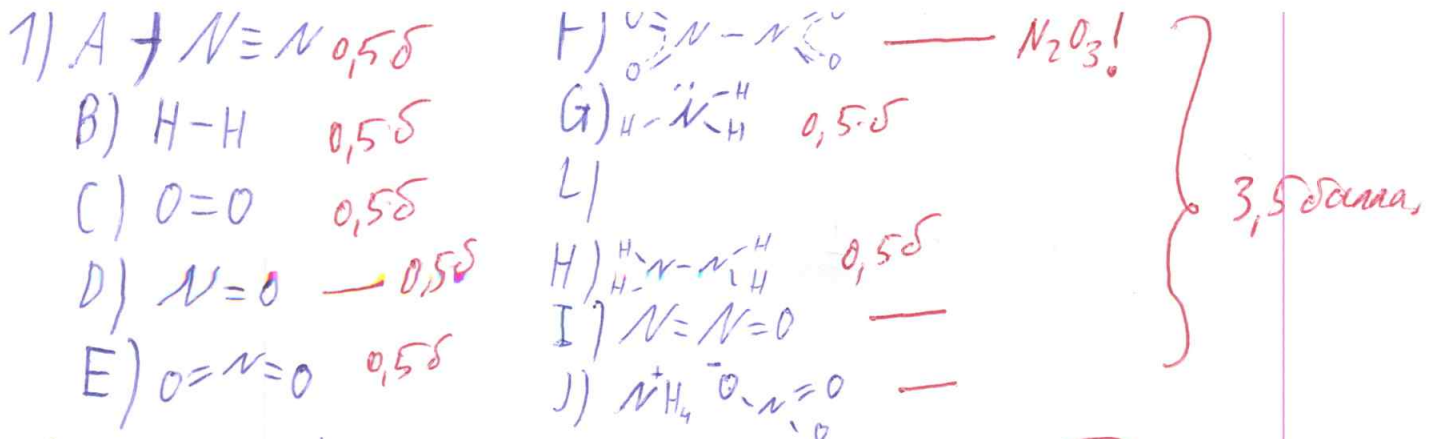 1) A) N≡N 0,5б
B) H-H 0,5б
C) O=O 0,5б
D) N=O — 0,5б
E) O=N=O 0,5б
F) O N-N O O O — N2O3!
G) H-N̈-H H 0,5б
L)
H) H H N-N H H 0,5б
I) N=N=O —
J) N⁺H4 ⁻O N=O O —
3,5 балла,